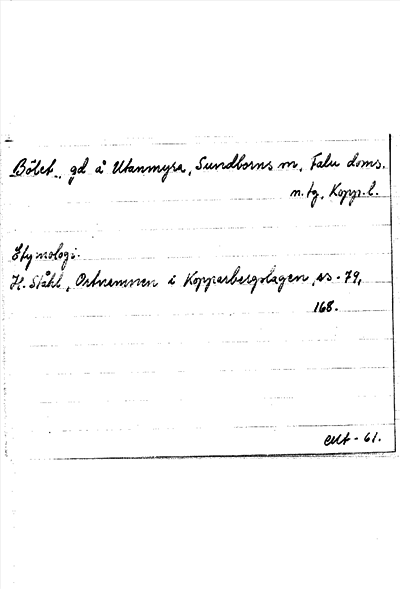 Bölet, gd å Utanmyra, Sundborns sn, Falu doms.
n. tg, Kopp. l.
Etymologi.
H. Ståhl, Ortnamnen i Kopparbergslagen, ss. 79,
168.
-61.